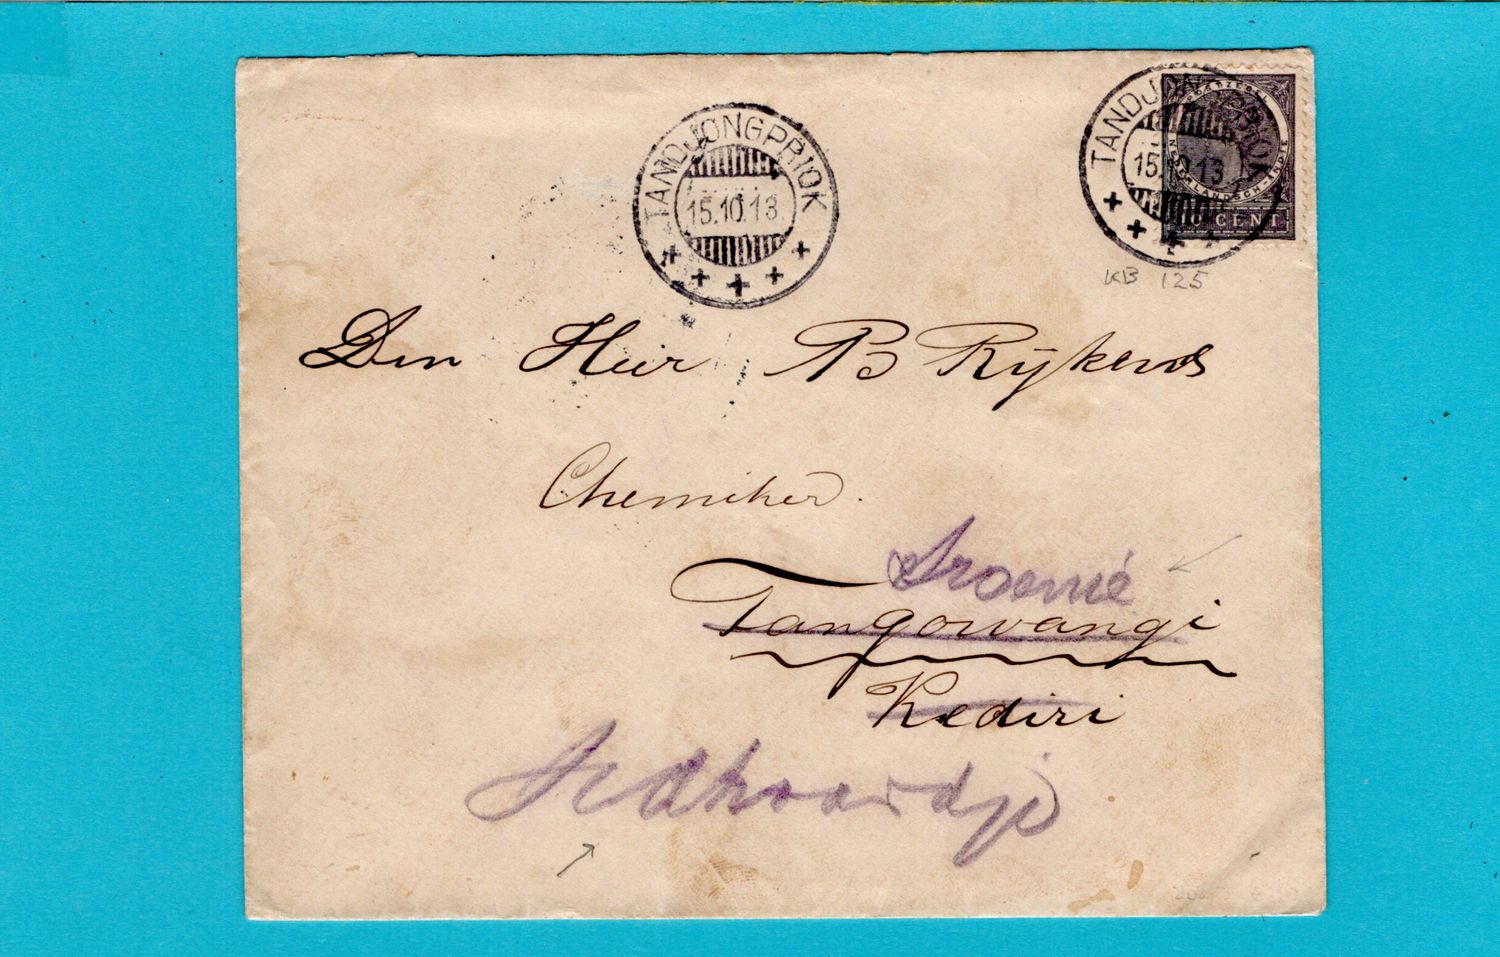 TANDJONGPRIOK
15.10.13
TANDJONGPRIOK
15.10.13
POSTZEGEL
NEDERLANDSCH-INDIE
10 CENT
KB 125
Den Heer B Rijkens
Chemiker.
Kroenié
Tangowangi
Kediri
Sidhoardjo